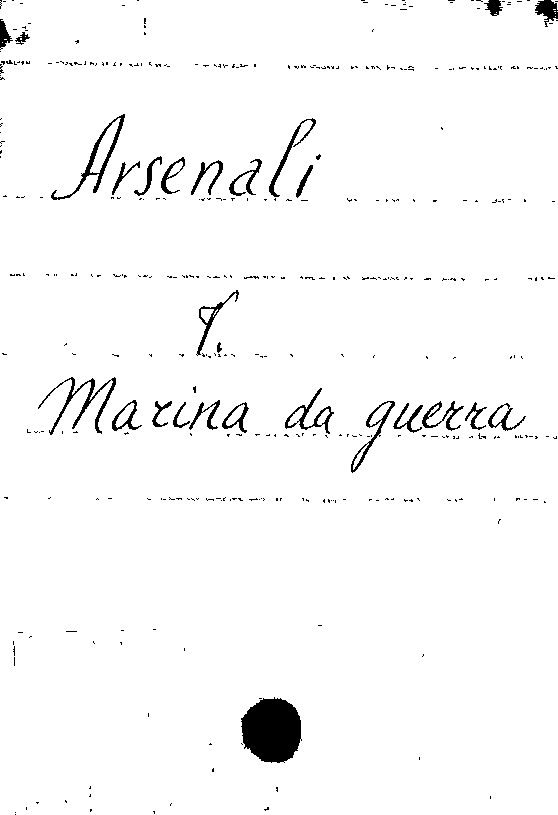 Arsenali
V.
Marina da guerra